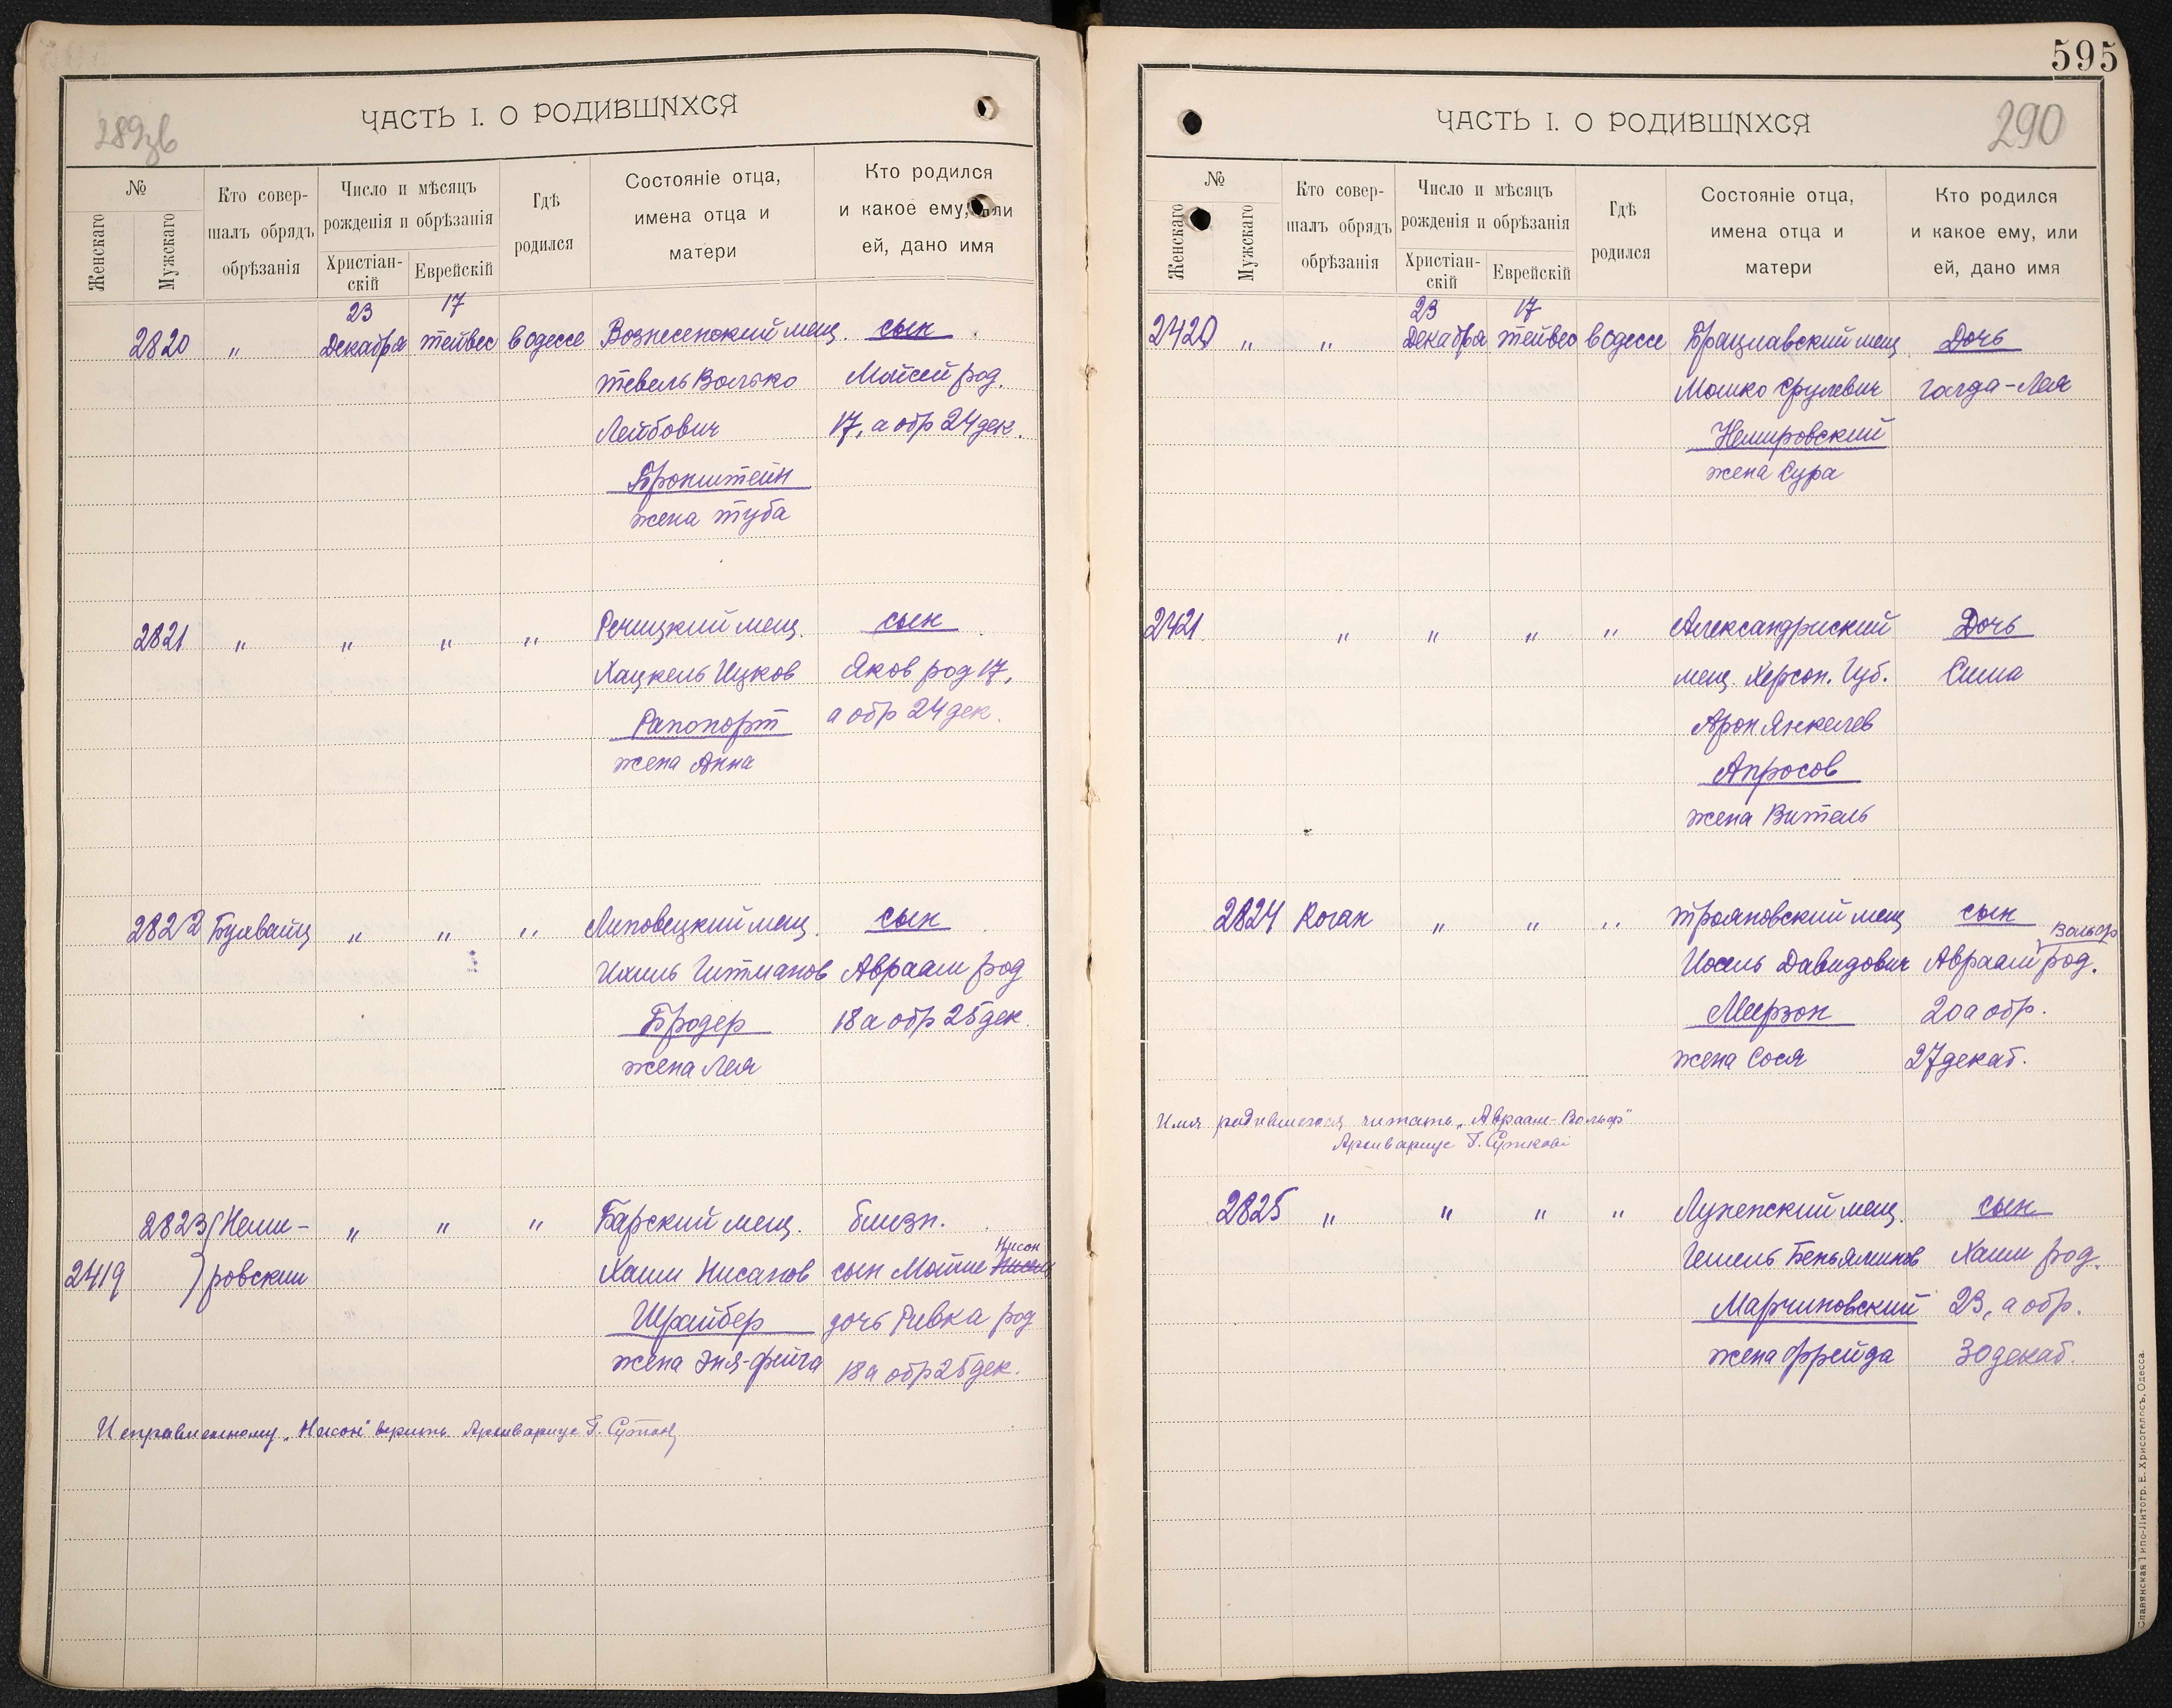 289зв
ЧАСТЬ I. О РОДИВШИХСЯ
№
Женскаго
Мужскаго
Кто совер-
шалъ обрядъ
обрѣзанія
Число и мѣсяцъ
рожденія и обрѣзанія
Христіан-
скій
Еврейскій
Гдѣ
родился
Состояніе отца,
имена отца и
матери
Кто родился
и какое ему, или
ей, дано имя
23 17
2820 " Декабря тейвес в Одессе Вознесенский мещ. сын
Тевель Волько Мойсей род.
Лейбович 17, а обр 24 дек.
Бронштейн
жена Туба
2821 " " " " Речицкий мещ. сын
Хацкель Ицков Яков род 17,
Рапопорт а обр 24 дек.
жена Анна
2822 Бухвайц " " " Липовецкий мещ. сын
Ихиль Гитманов Авраам род
Бродер 18 а обр 25 дек.
жена Лея
2823 (Неми- " " " Барский мещ. близн.
Нисон
2419 ) ровский Хаим Нисанов сын Мойше
Шрайбер дочь Ривка род
жена Эня-Фейга 18 а обр 25 дек.
Исправленному „Нисон" верить Архивариус Г.
595
ЧАСТЬ I. О РОДИВШИХСЯ
290
№
Женскаго
Мужскаго
Кто совер-
шалъ обрядъ
обрѣзанія
Число и мѣсяцъ
рожденія и обрѣзанія
Христіан-
скій
Еврейскій
Гдѣ
родился
Состояніе отца,
имена отца и
матери
Кто родился
и какое ему, или
ей, дано имя
23 17
2420 " " Декабря тейвес в Одессе Брацлавский мещ. Дочь
Мошко Срулевич Голда-Лея
Немировский
жена Сура
2421 " " " " Александрийский Дочь
мещ. Херсон. Губ. Сима
Арон Янкелев
Апросов
жена Витель
2824 Коган " " " Трояновский мещ сын
Вольф
Иосель Давидович Авраам род.
Меерзон 20 а обр.
жена Сося 27 декаб.
Имя родившегося читать „Авраам-Вольф"
Архивариус Г.
2825 " " " " Лукенский мещ. сын
Гешель Беньяминов Хаим род.
Марчиновский 23, а обр.
жена Фрейда 30 декаб.
Славянская Типо-Литогр. Е. Хрисогелосъ. Одесса.